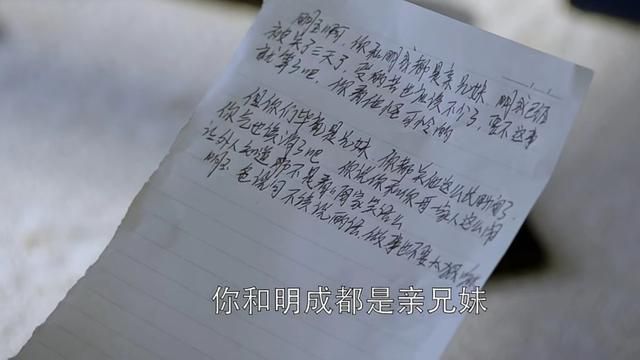 明玉啊，你和明成都是亲兄妹，明成已经
被关了三天了，受的苦也应该不少了，要不这事
就算了吧，你看他怪可怜的
但你们毕竟是兄妹，你都关他这么长时间了，
你气也该消了吧 你说你和你母一家人这么闹
让外人知道 那不是看咱家笑话么
明玉 爸说句不该说的话，做事也不要太狠
你和明成都是亲兄妹